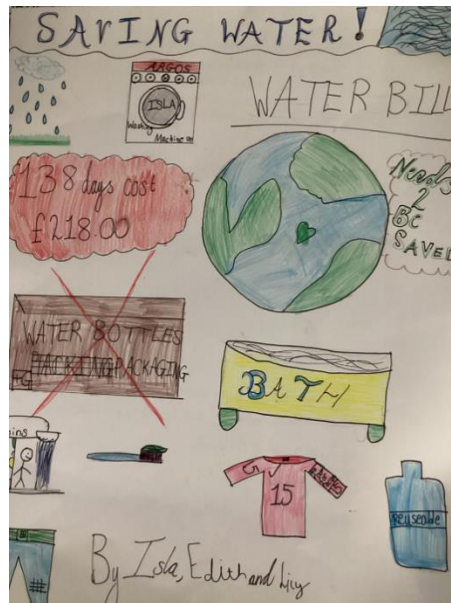 SAVING WATER!
ARGOS
ISLA
Washing
Machine
WATER BILL
138 days cost
£218.00
Needs
2
BE
SAVED
WATER BOTTLES
PACKAGING
BATH
15
Reuseable
By Isla, Edith and Lucy